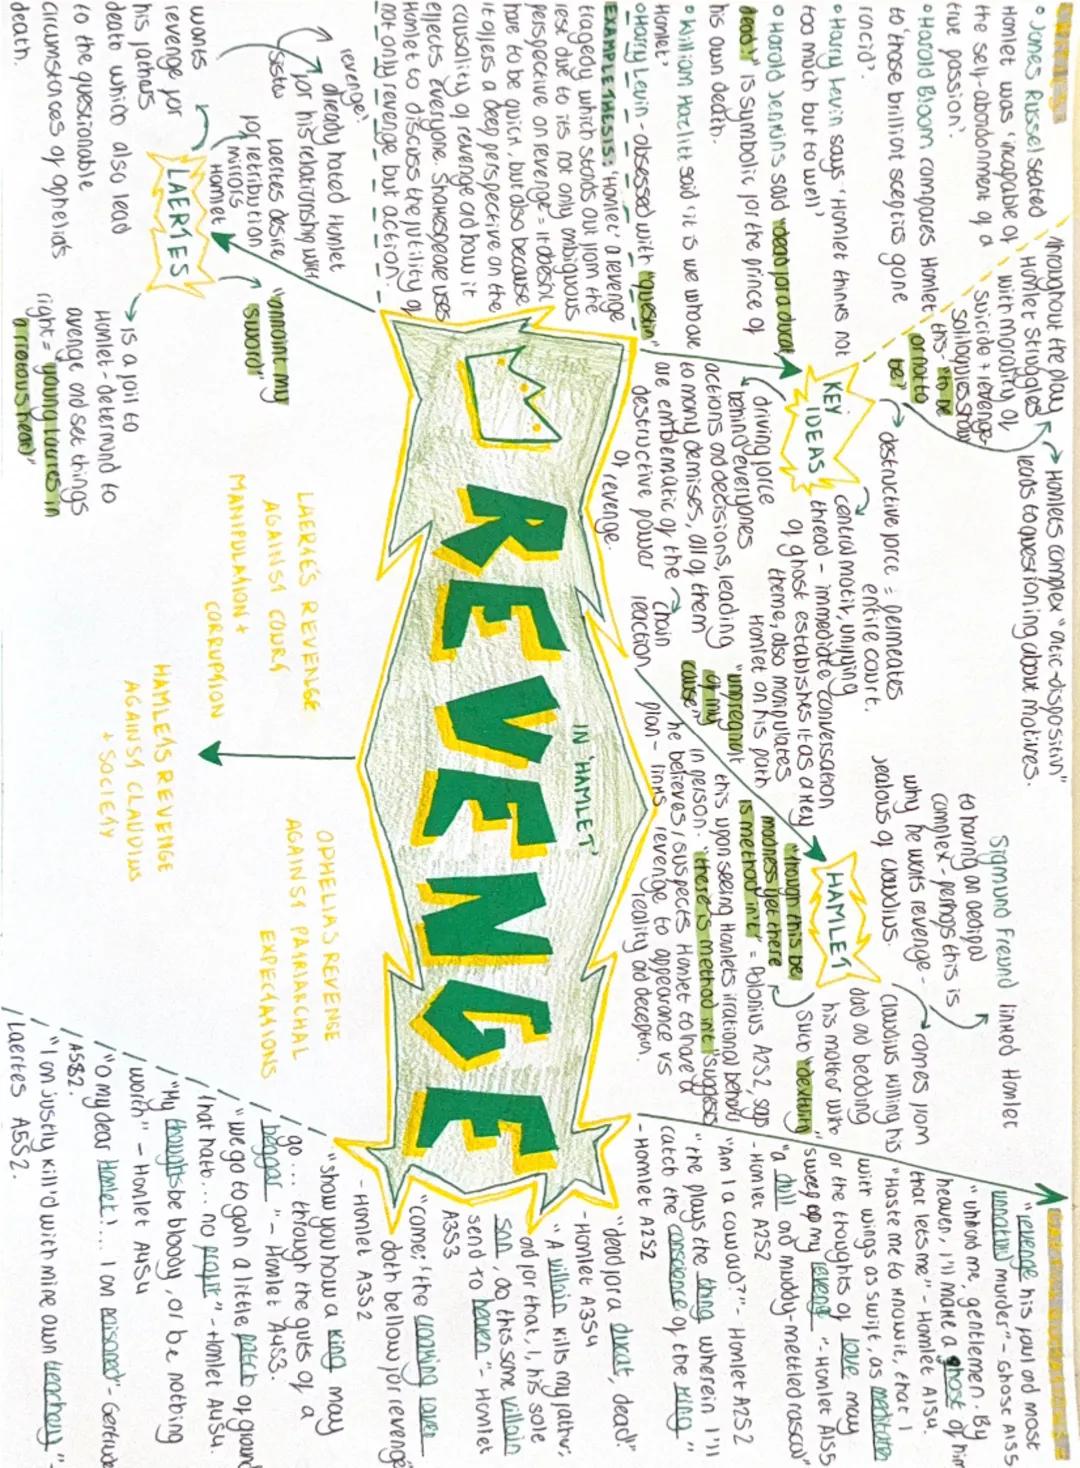 REVENGE
IN 'HAMLET'
CRITICS
• James Russel stated
Hamlet was 'incapable of
the self-abandonment of a
true passion'.
• Harold Bloom compares Hamlet
to 'those brilliant sceptics gone
rancid'.
• Harry Levin says 'Hamlet thinks not
too much but to well'
• Harold Jenkins said "dead for a ducat
dead!" is symbolic for the prince of
his own death.
• William Hazlitt said 'it is we who are
Hamlet'
• Harry Levin - obsessed with "question"
EXAMPLE THESIS: 'Hamlet' a revenge
tragedy which stands out from the
rest due to its not only ambiguous
perspective on revenge = it doesnt
have to be quick, but also because
it offers a deep perspective on the
causality of revenge and how it
effects everyone. Shakespeare uses
Hamlet to discuss the futility of
not only revenge but action.
Throughout the play
Hamlet struggles
with morality of
suicide + revenge-
soliloquies show
this- "to be
or not to
be?"
Hamlets complex "atic-dispositin"
leads to questioning about motives.
KEY
IDEAS
destructive force = permeates
entire court.
central motiv, unifying
thread - immediate conversation
of ghost establishes it as a key
theme, also manipulates
Hamlet on his path
driving force
behind everyones
actions and decisions, leading
to many demises, all of them
are emblematic of the
destructive power
of revenge.
chain
reaction
HAMLET
Sigmund Freund linked Hamlet
to having an oedipal
complex - perhaps this is
why he wants revenge -
jealous of claudius.
comes from
claudius killing his
dad and bedding
his mother with
such "dexterity"
"though this be
madness yet there
is method in't" = Polonius A2S2, says
this upon seeing Hamlets irrational behaviour
in person. "there is method in't" suggests
he believes/suspects Hamlet to have a
plan - links revenge to appearance vs
reality and deception.
"unpregnant
of my
cause"
"revenge his foul and most
unnatural murder." - Ghost A1S5
"unhand me, gentlemen. By
heaven, I'll make a ghost of him
that lets me" - Hamlet A1S4.
"Haste me to know it, that I
with wings as swift, as meditation
or the thoughts of love may
sweep to my revenge". - Hamlet A1S5
"a dull and muddy-mettled rascal"
- Hamlet A2S2
"Am I a coward?" - Hamlet A2S2
"the plays the thing wherein I'll
catch the conscience of the king"
- Hamlet A2S2
"dead for a ducat, dead!"
- Hamlet A3S4
"A villain kills my father;
and for that, I, his sole
son, do this same villain
send to heaven" - Hamlet
A3S3
"Come: 'the croaking raven
doth bellow for revenge'"
- Hamlet A3S2
"show you how a king may
go... through the guts of a
beggar" - Hamlet A4S3.
"we go to gain a little patch of ground
that hath... no profit" - Hamlet A4S4.
"My thoughts be bloody, or be nothing
worth" - Hamlet A4S4
"O my dear Hamlet!... I am poisoned" - Gertrude
A5S2.
"I am justly kill'd with mine own treachery" -
Laertes A5S2.
LAERTES
already hated Hamlet
for his relationship with
sister
revenge!
laertes desire
for retribution
mirrors
Hamlet
wants
revenge for
his fathers
death which also lead
to the questionable
circumstances of ophelia's
death.
"annoint my
sword"
is a foil to
Hamlet - determind to
avenge and set things
right =
LAERTES REVENGE
AGAINST COURT
MANIPULATION +
CORRUPTION
HAMLETS REVENGE
AGAINST CLAUDIUS
+ SOCIETY
OPHELIAS REVENGE
AGAINST PATRIARCHAL
EXPECTATIONS